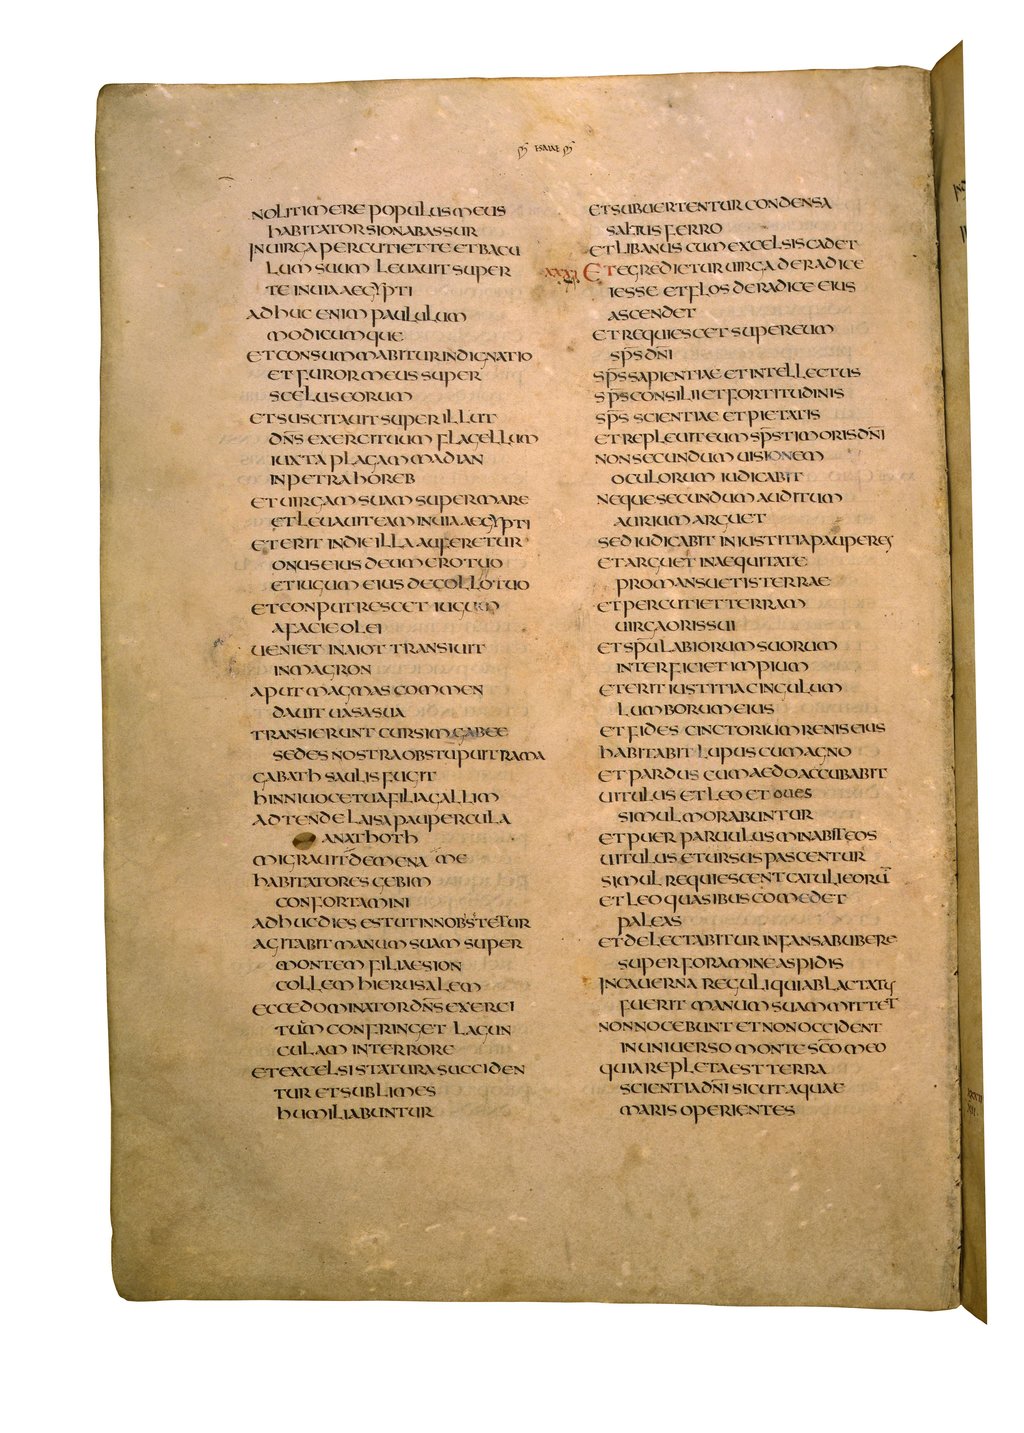 ESAIAE
NOLITIMERE POPULUS MEUS
HABITATOR SION ABASSUR
IN UIRGA PERCUTIET TE ET BACU
LUM SUUM LEUAUIT SUPER
TE IN UIA AEGYPTI
ADHUC ENIM PAULULUM
MODICUMQUE
ET CONSUMMABITUR INDIGNATIO
ET FUROR MEUS SUPER
SCELUS EORUM
ET SUSCITAUIT SUPER ILLUT
DN̅S EXERCITUUM FLAGELLUM
IUXTA PLAGAM MADIAN
IN PETRA HOREB
ET UIRGAM SUAM SUPER MARE
ET LEUAUIT EAM IN UIA AEGYPTI
ET ERIT IN DIE ILLA AUFERETUR
ONUS EIUS DE UMERO TUO
ET IUGUM EIUS DE COLLO TUO
ET CONPUTRESCET IUGUM
A FACIE OLEI
UENIET IN AIOT TRANSIUIT
IN MAGRON
APUT MAGMAS COMMEN
DAUIT UASA SUA
TRANSIERUNT CURSIM GABEE
SEDES NOSTRA OBSTUPUIT RAMA
GABATH SAULIS FUGIT
HINNI UOCE TUA FILIA GALLIM
ADTENDE LAISA PAUPERCULA
ANATHOTH
MIGRAUIT DEMENA ME
HABITATORES GEBIM
CONFORTAMINI
ADHUC DIES EST UT IN NOB STETUR
AGITABIT MANUM SUAM SUPER
MONTEM FILIAE SION
COLLEM HIERUSALEM
ECCE DOMINATOR DN̅S EXERCI
TUUM CONFRINGET LAGUN
CULAM IN TERRORE
ET EXCELSI STATURA SUCCIDEN
TUR ET SUBLIMES
HUMILIABUNTUR
ET SUBUERTENTUR CONDENSA
SALTUS FERRO
ET LIBANUS CUM EXCELSIS CADET
XXXXI ET EGREDIETUR UIRGA DE RADICE
IESSE ET FLOS DE RADICE EIUS
ASCENDET
ET REQUIESCET SUPER EUM
SP̅S DN̅I
SP̅S SAPIENTIAE ET INTELLECTUS
SP̅S CONSILII ET FORTITUDINIS
SP̅S SCIENTIAE ET PIETATIS
ET REPLEUIT EUM SP̅S TIMORIS DN̅I
NON SECUNDUM UISIONEM
OCULORUM IUDICABIT
NEQUE SECUNDUM AUDITUM
AURIUM ARGUET
SED IUDICABIT IN IUSTITIA PAUPERES
ET ARGUET IN AEQUITATE
PRO MANSUETIS TERRAE
ET PERCUTIET TERRAM
UIRGA ORIS SUI
ET SP̅U LABIORUM SUORUM
INTERFICIET IMPIUM
ET ERIT IUSTITIA CINGULUM
LUMBORUM EIUS
ET FIDES CINCTORIUM RENIS EIUS
HABITABIT LUPUS CUM AGNO
ET PARDUS CUM AEDO ACCUBABIT
UITULUS ET LEO ET OUES
SIMUL MORABUNTUR
ET PUER PARUULUS MINABIT EOS
UITULUS ET URSUS PASCENTUR
SIMUL REQUIESCENT CATULI EORU̅
ET LEO QUASI BUS COMEDET
PALEAS
ET DELECTABITUR INFANS AB UBERE
SUPER FORAMINE ASPIDIS
IN CAUERNA REGULI QUI ABLACTATUS
FUERIT MANUM SUAM MITTET
NON NOCEBUNT ET NON OCCIDENT
IN UNIUERSO MONTE SC̅O MEO
QUIA REPLETA EST TERRA
SCIENTIA DN̅I SICUT AQUAE
MARIS OPERIENTES